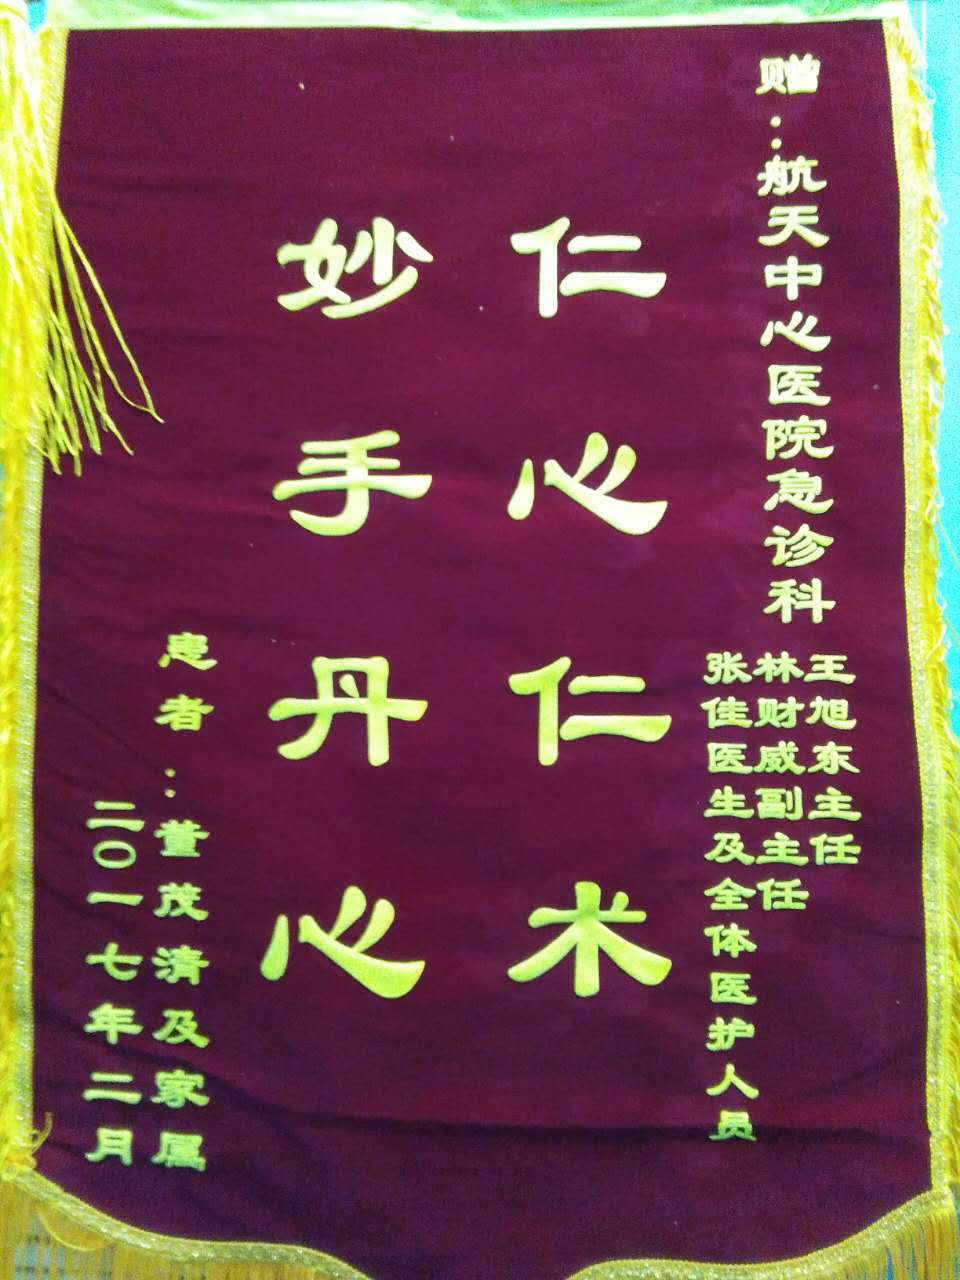 赠：航天中心医院急诊科
王旭东主任
林财威副主任
张佳医生及全体医护人员
仁心仁术
妙手丹心
患者：董茂清及家属
二〇一七年二月